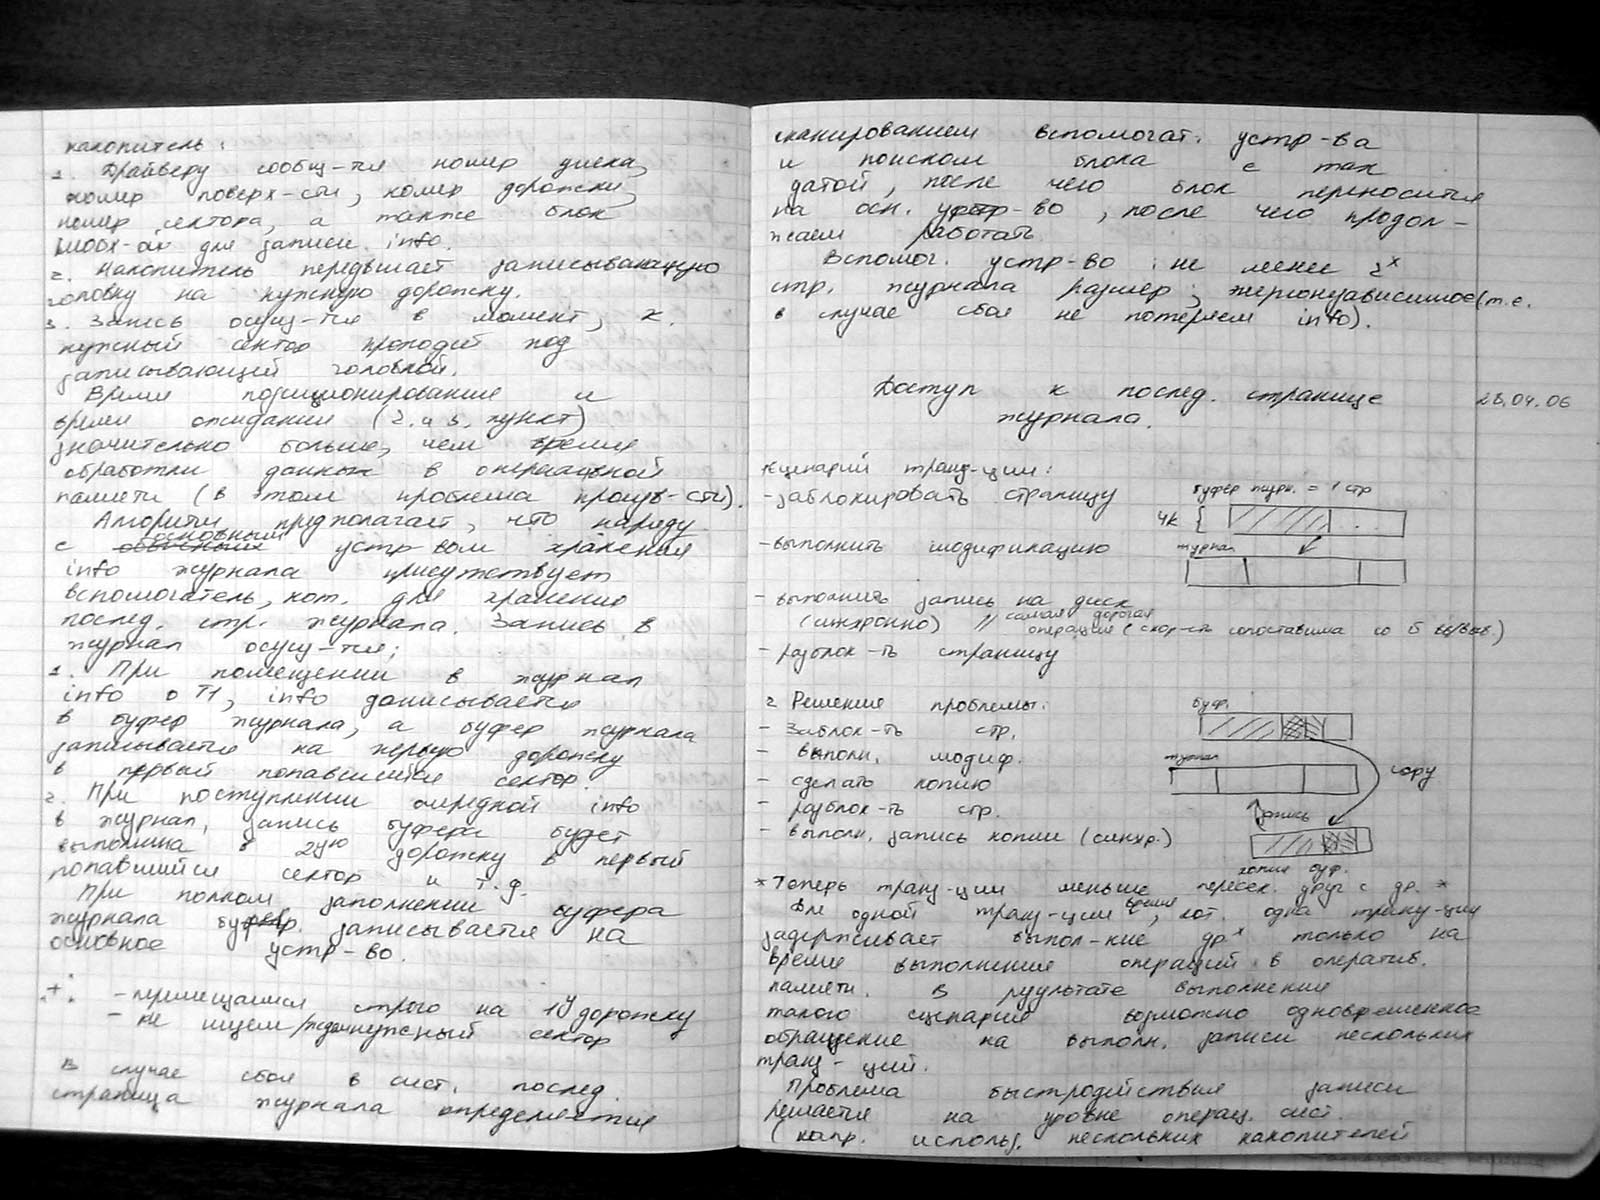 накопитель:
1. Драйверу сообщ-тся номер диска,
номер поверх-сти, номер дорожки,
номер сектора, а также блок
для записи info.
2. Накопитель передвигает записывающую
головку на нужную дорожку.
3. Запись осущ-тся в момент, к.
нужный сектор проходит под
записывающей головкой.
Время позиционирования и
время ожидания (2. и 3. пункт)
значительно больше, чем время
обработки данных в оперативной
памяти (в этом проблема произв-сти).
Алгоритм предполагает, что наряду
основным
с устр-вом хранения
info журнала присутствует
вспомогатель, кот. для хранения
послед. стр. журнала. Запись в
журнал осущ-тся:
1. При помещении в журнал
info о T1, info дописывается
в буфер журнала, а буфер журнала
записывается на первую дорожку
в первый попавшийся сектор.
2. При поступлении очередной info
в журнал, запись буфера будет
выполнена в 2ую дорожку в первый
попавшийся сектор и т.д.
При полном заполнении буфера
журнала буфер. записывается на
основное устр-во.
"+": - перемещаемся строго на 1у дорожку
- не ищем/ждем нужный сектор
В случае сбоя в сист. послед.
страница журнала определяется
сканированием вспомогат. устр-ва
и поиском блока с max
датой, после чего блок переносится
на осн. устр-во, после чего продол-
жаем работать
Вспомог. устр-во: не менее 2х
стр. журнала размер; энергонезависимое (т.е.
в случае сбоя не потеряем info).
Доступ к послед. странице 28.04.06
журнала.
Сценарий транз-ции:
- заблокировать страницу
буфер журн. = 1 стр
4К
- выполнить модификацию
журнал
- выполнить запись на диск
(синхронно) // самая дорогая
операция (скор-сть сопоставима со)
- разблок-ть страницу
2 Решение проблемы:
буф.
- Заблок-ть стр.
- выполн. модиф.
журнал
- сделать копию
copy
- разблок-ть стр.
запись
- выполн. запись копии (синхр.)
копия буф.
* Теперь транз-ции меньше пересек. друг с др. *
Для одной транз-ции время, кот. одна транз-ция
задерживает выпол-ние др* только на
время выполнения операций в оператив.
памяти. В результате выполнения
такого сценария возможно одновременное
обращение на выполн. записи нескольких
транз-ций.
Проблема быстродействия записи
решается на уровне операц. сист.
(напр. использ. нескольких накопителей